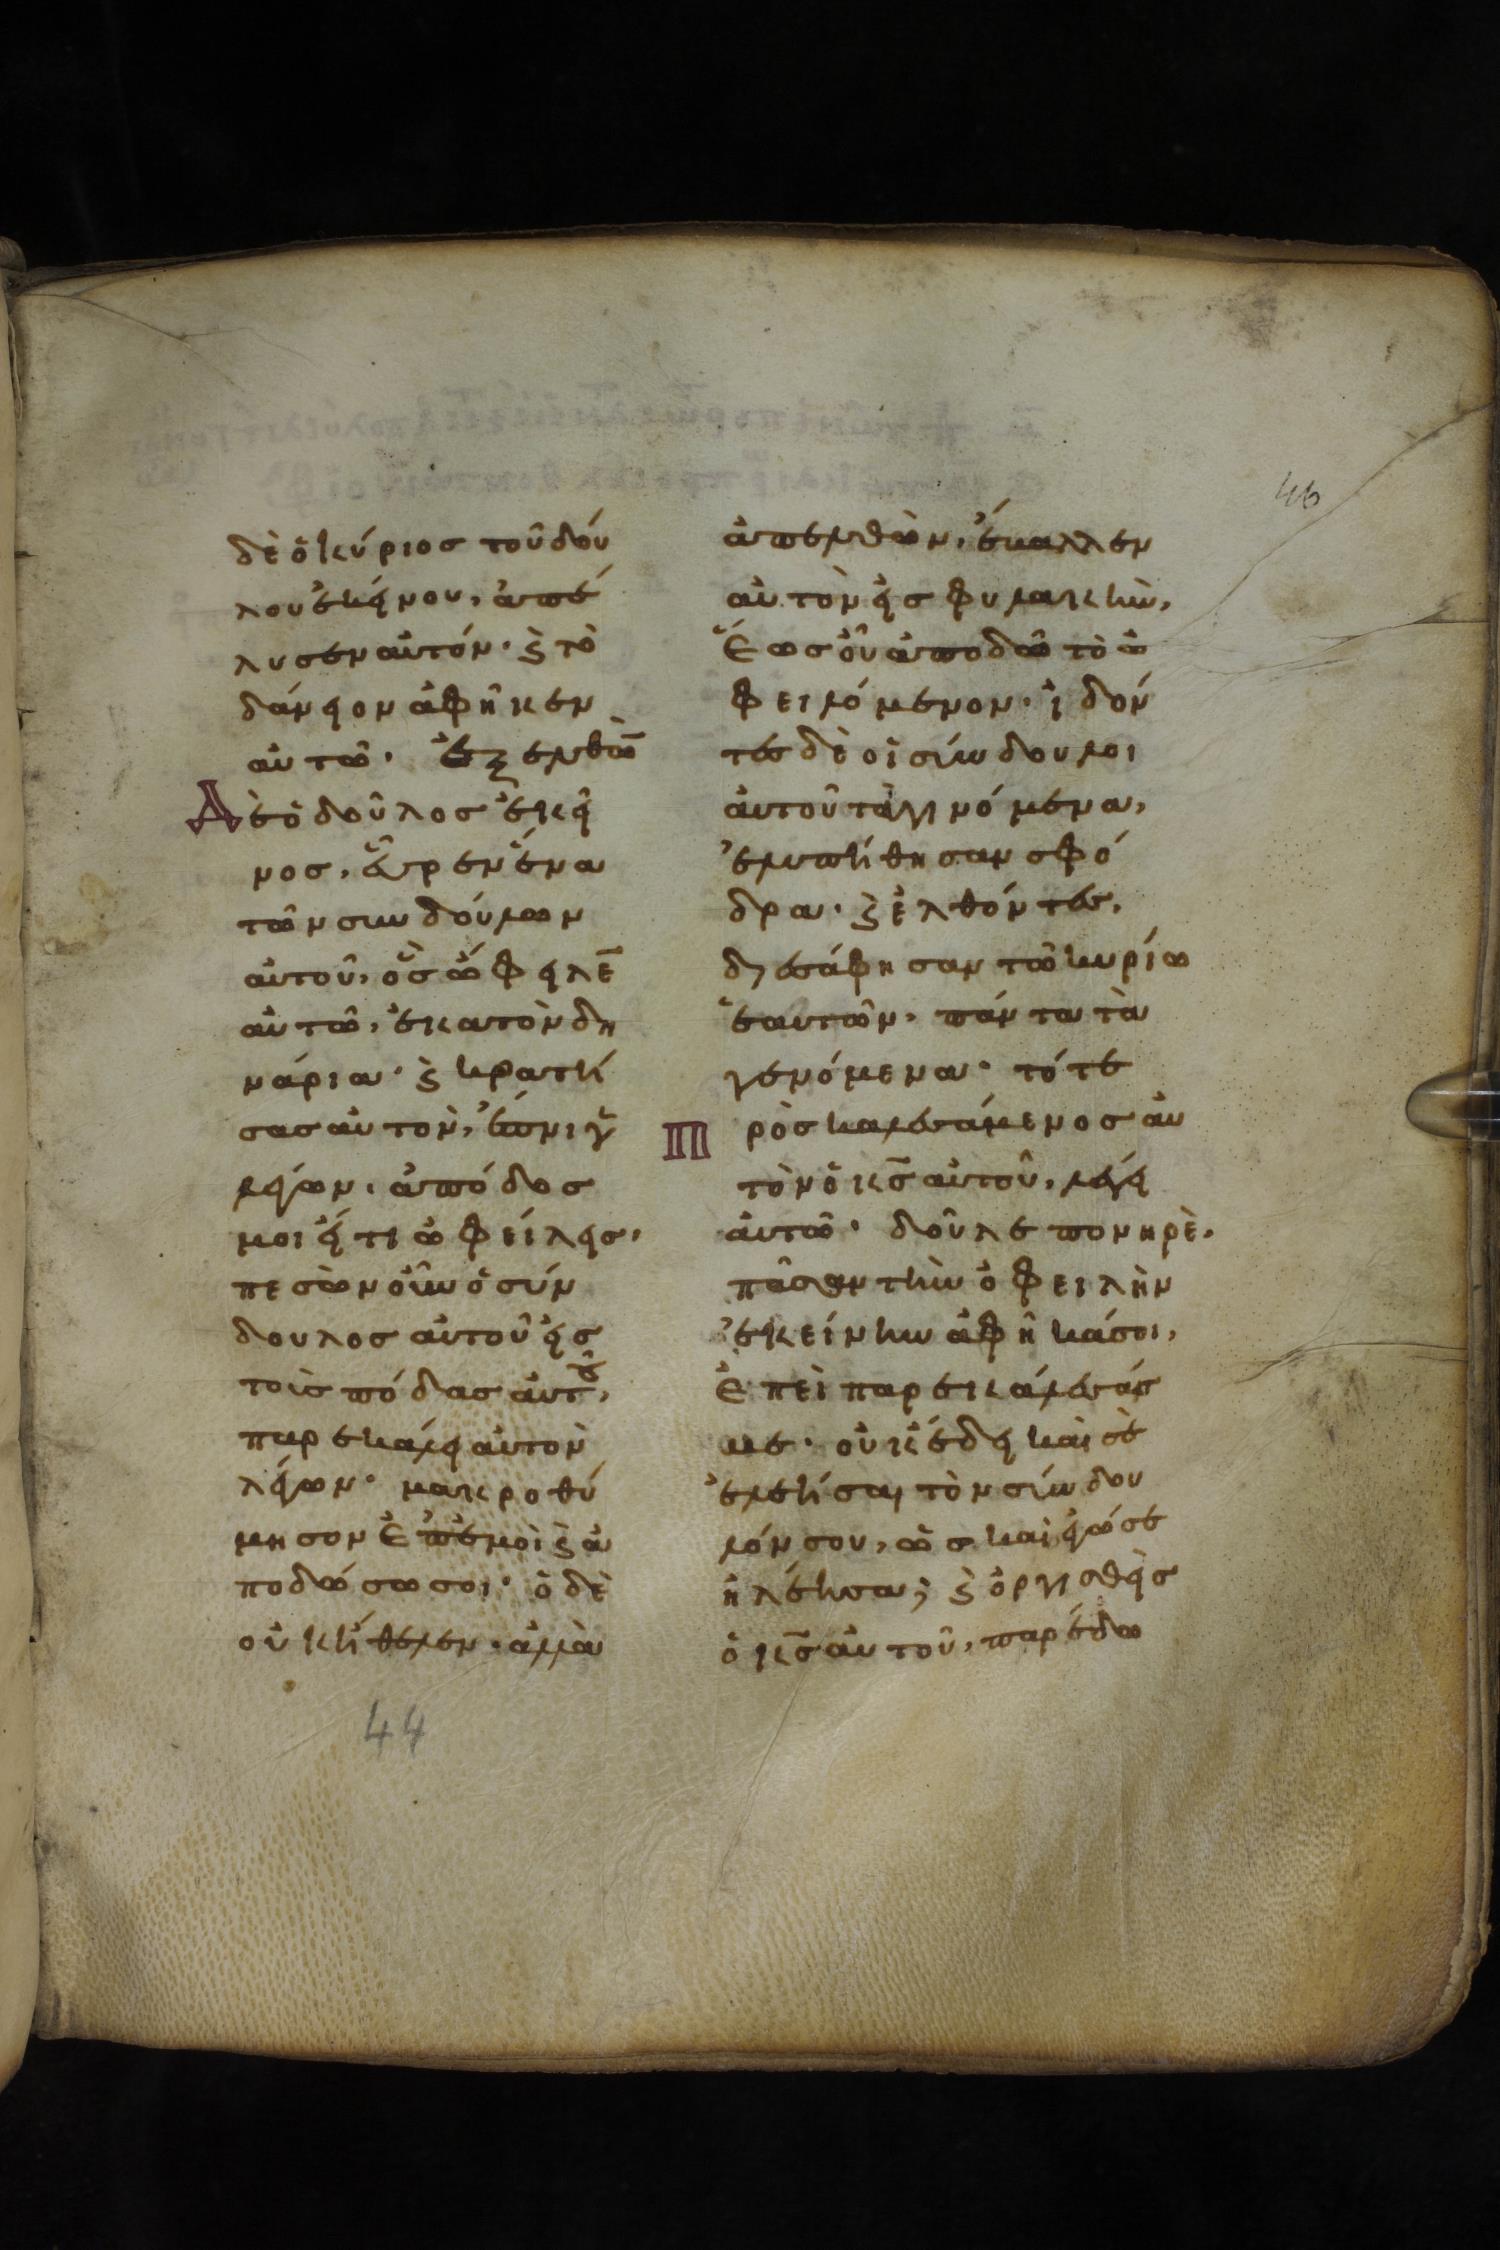 46
δὲ ὁ κύριος τοῦ δού
λου ἐκείνου, ἀπέ
λυσεν αὐτόν· ϗ τὸ
δάνειον ἀφῆκεν
αὐτῶ· ἐξελθὼ̅
Δὲ ὁ δοῦλος ἐκεῖ
νος, εὗρεν ἕνα
τῶν συνδούλων
αὐτοῦ, ὃς ὤφειλε̅
αὐτῶ, ἑκατὸν δη
νάρια· ϗ κρατή
σας αὐτὸν, ἔπνιγε
λέγων, ἀπόδος
μοι εἴ τι ὠφείλεις,
πεσὼν οὖν ὁ σύν
δουλος αὐτοῦ εἰς
τοὺς πόδας αὐτοῦ,
παρεκάλει αὐτὸν
λέγων· μακροθύ
μησον ἐπ' ἐμοὶ ϗ ἀ
ποδώσω σοι· ὁ δὲ
οὐκ ἤθελεν· ἀλλὰ
ἀπελθὼν, ἔβαλλεν
αὐτὸν εἰς φυλακὴν,
ἕως οὗ ἀποδῶ τὸ ὀ
φειλόμενον· ἰδόν
τες δὲ οἱ σύνδουλοι
αὐτοῦ τὰ γινόμενα,
ἐλυπήθησαν σφό
δρα· ϗ ἐλθόντες,
διεσάφησαν τῶ κυρίω
ἑαυτῶν, πάντα τὰ
γενόμενα· τότε
Προσκαλεσάμενος αὐ
τὸν ὁ κ̅ς̅ αὐτοῦ, λέγει
αὐτῶ· δοῦλε πονηρὲ,
πᾶσαν τὴν ὀφειλὴν
ἐκείνην ἀφῆκά σοι,
ἐπεὶ παρεκάλεσάς
με· οὐκ ἔδει καὶ σὲ
ἐλεῆσαι τὸν σύνδου
λόν σου, ὡς καὶ ἐγώ σε
ἠλέησα; ϗ ὀργισθεὶς
ὁ κ̅ς̅ αὐτοῦ, παρέδω
44